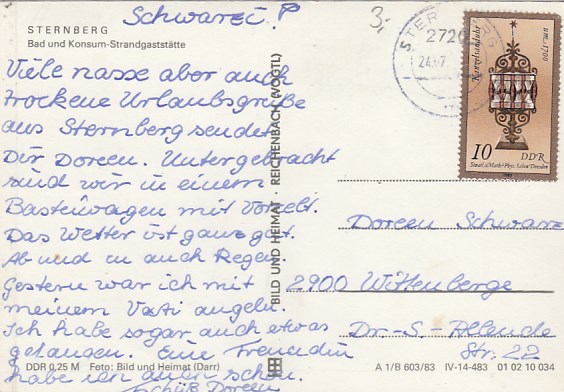 Schwarz. P
3,-
STERNBERG
Bad und Konsum-Strandgaststätte
Viele nasse aber auch
trockene Urlaubsgrüße
aus Sternberg sendet
Dir Doreen. Untergebracht
sind wir in einem
Bastei­wagen mit Vorzelt.
Das Wetter ist ganz gut.
Ab und zu auch Regen.
Gestern war ich mit
meinem Vati angeln.
Ich habe sogar auch etwas
gefangen. Eine Freundin
habe ich auch schon.
Tschüß Doreen
DDR 0,25 M Foto: Bild und Heimat (Darr)
BILD UND HEIMAT · REICHENBACH (VOGTL)
STERNBERG
2720
24.
Kanzelsanduhr
um 1700
10 DDR
Staatl. Math.-Phys. Salon Dresden
1983
Doreen Schwarz
2900 Wittenberge
Dr.-S.-Allende
Str. 22
A 1/B 603/83 IV-14-483 01 02 10 034